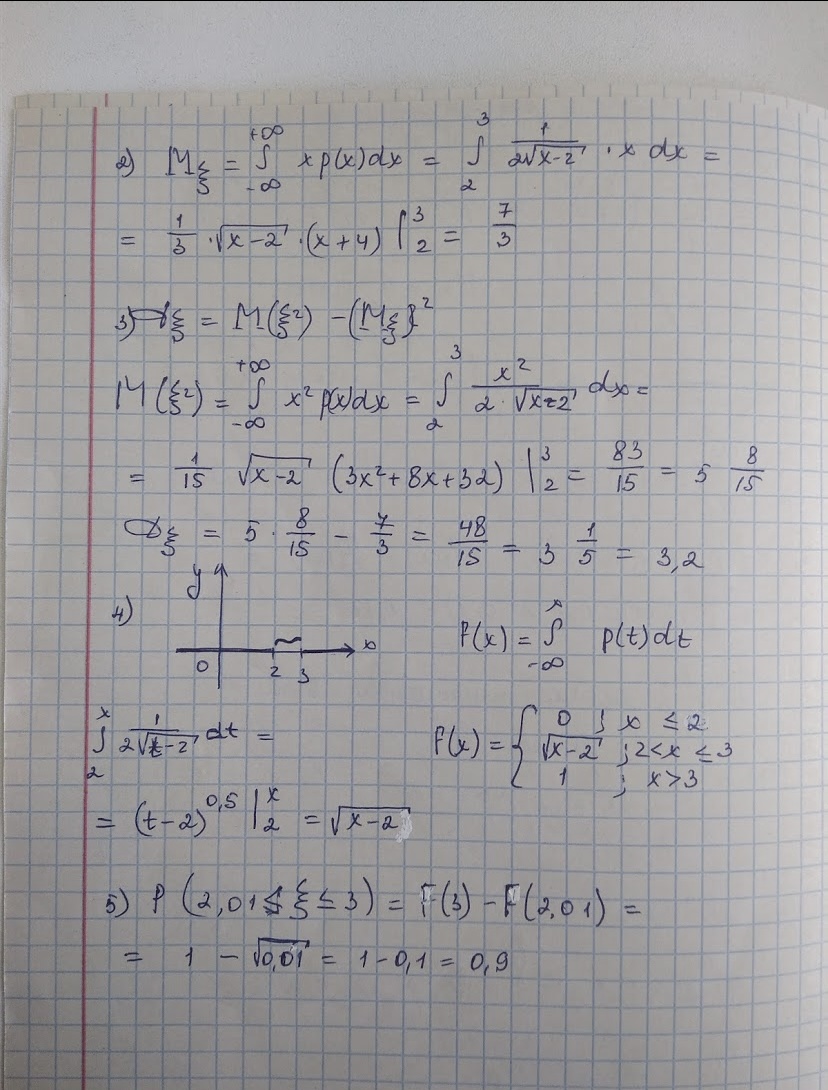 2) Mξ = ∫₋∞^+∞ x p(x) dx = ∫₂³ 1/(2√(x-2)) · x dx =
= 1/3 · √(x-2) · (x+4) |₂³ = 7/3
3) Dξ = M(ξ²) - (Mξ)²
M(ξ²) = ∫₋∞^+∞ x² p(x) dx = ∫₂³ x²/(2·√(x-2)) dx =
= 1/15 √(x-2) (3x²+8x+32) |₂³ = 83/15 = 5 8/15
Dξ = 5 · 8/15 - 7/3 = 48/15 = 3 1/5 = 3,2
4) y 0 2 3 x F(x) = ∫₋∞^x p(t) dt
∫₂^x 1/(2√(t-2)) dt = F(x) = { 0 ; x ≤ 2
√(x-2) ; 2 < x ≤ 3
1 ; x > 3
= (t-2)^0,5 |₂^x = √(x-2)
5) P (2,01 ≤ ξ ≤ 3) = F(3) - F(2,01) =
= 1 - √0,01 = 1 - 0,1 = 0,9